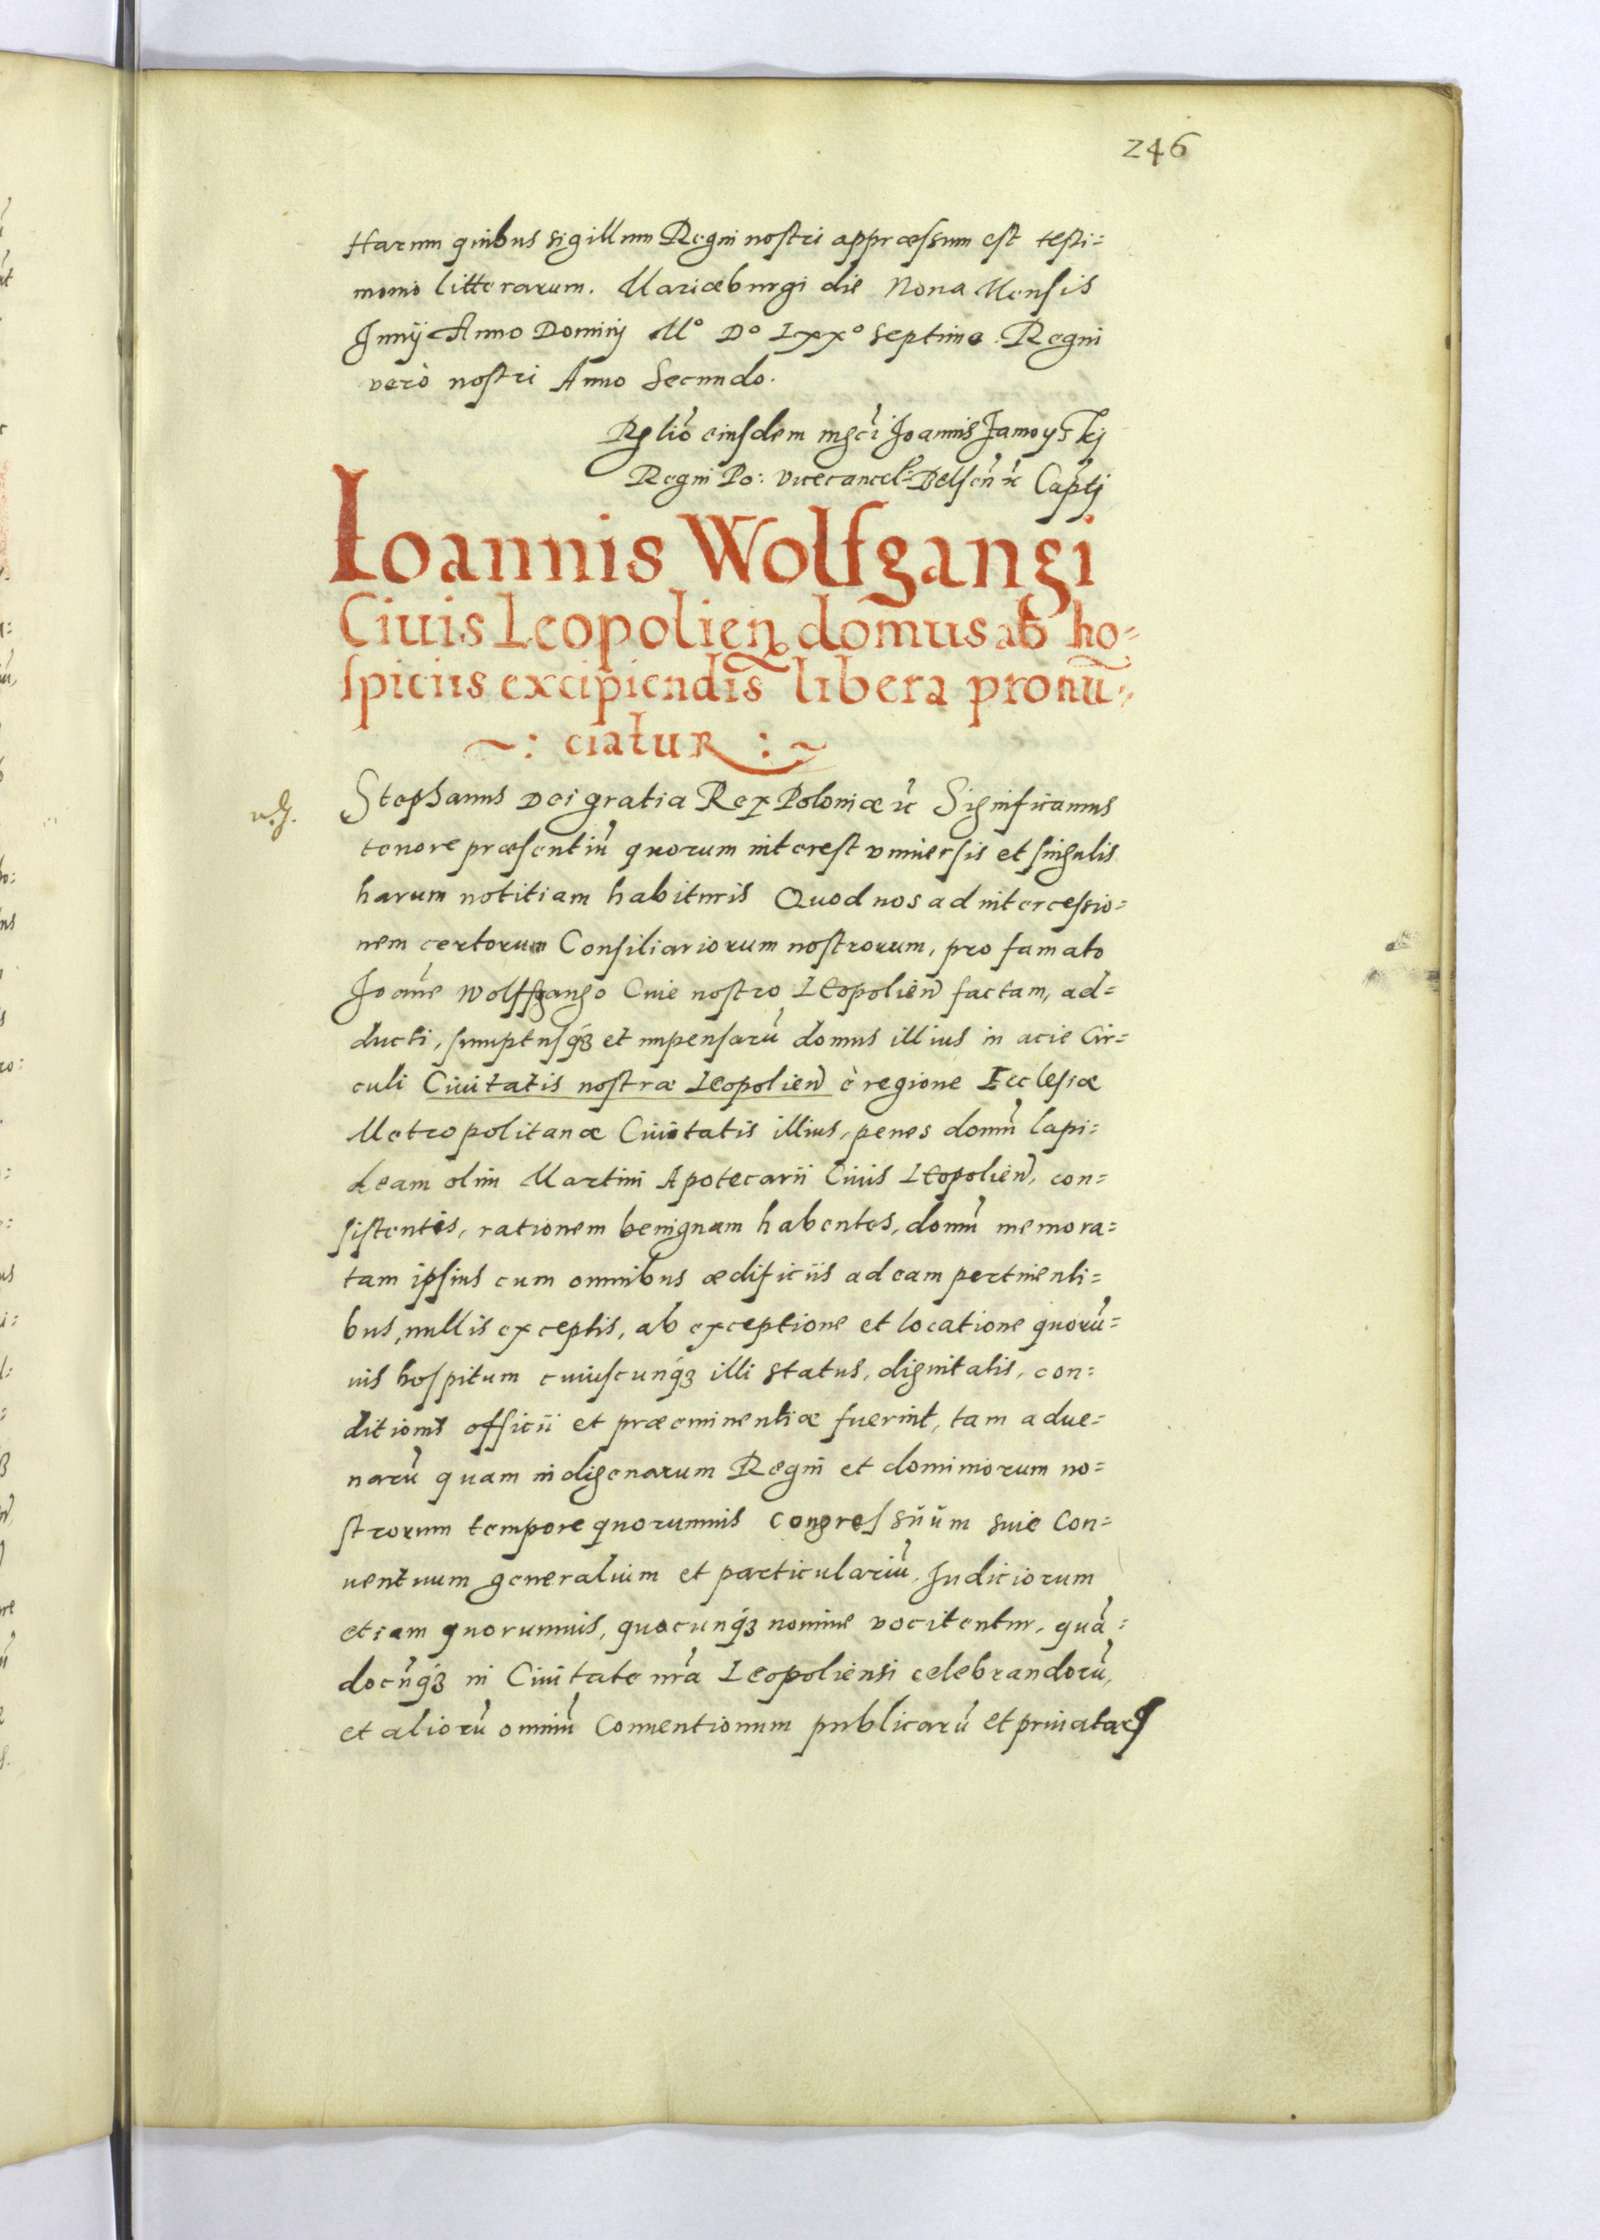 246
Harum quibus sigillum Regni nostri appræssum est testi=
monio litterarum. Mariæburgi die Nona Mensis
Junij Anno Dominj Mº Dº Lxxº septimo. Regni
verò nostri Anno Secundo.
Relio eiusdem mgci Joannis Zamoyskj
Regni Po: vicecancel: Belsen̄ ꝛc Captj
Ioannis Wolfgangi
Ciuis Leopolien̄ domus ab ho=
spiciis excipiendis libera pronū=
~: ciatur :~
Stephanus Dei gratia Rex Poloniæ ꝛc Significamus
tenore præsentiū quorum interest vniuersis et singulis
harum notitiam habituris Quod nos ad intercessio=
nem certorum Consiliariorum nostrorum, pro famato
Joāne Wolffgango Ciue nostro Leopolien̄ factam, ad=
ducti, sumptusqꝫ et impensarū domus illius in acie Cir=
culi Ciuitatis nostræ Leopolien̄ è regione Ecclesiæ
Metropolitanæ Ciuitatis illius, penes domū lapi=
deam olim Martini Apotecarii Ciuis Leopolien̄, con=
sistentis, rationem benignam habentes, domū memora=
tam ipsius cum omnibus ædificiis ad eam pertinenti=
bus, nullis exceptis, ab exceptione et locatione quorū=
uis hospitum cuiuscunqꝫ illi status, dignitatis, con=
ditionis officii et præeminentiæ fuerint, tam adue=
narū quam indigenarum Regni et dominiorum no=
strorum tempore quorumuis Congressuum siue Con=
uentuum generalium et particulariū, Judiciorum
etiam quorumuis, quocunqꝫ nomine vocitentur, quā=
docūqꝫ in Ciuitate nr̄a Leopoliensi celebrandorū,
et aliorū omniū Conuentionum publicarū et priuatarꝭ